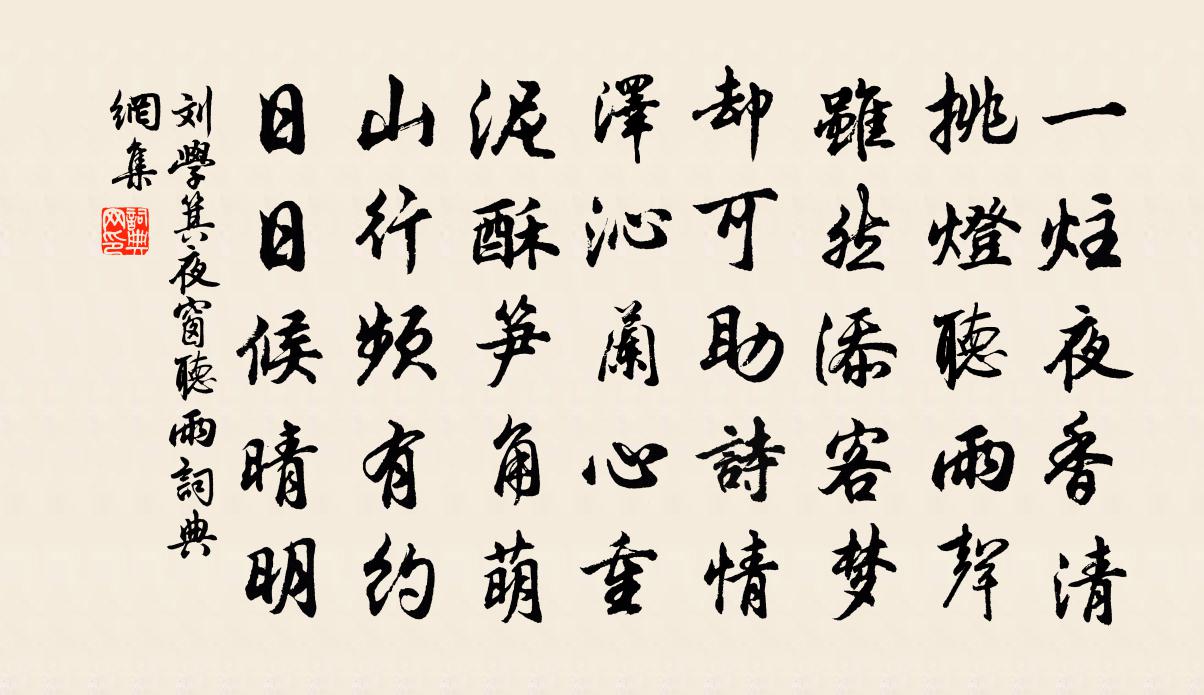 一炷夜香清
挑燈聽雨聲
雖然添客梦
却可助詩情
澤沁蘭心重
泥酥笋角萌
山行频有约
日日候晴明
刘學箕夜窗聽雨詞典
網集
詞典网印